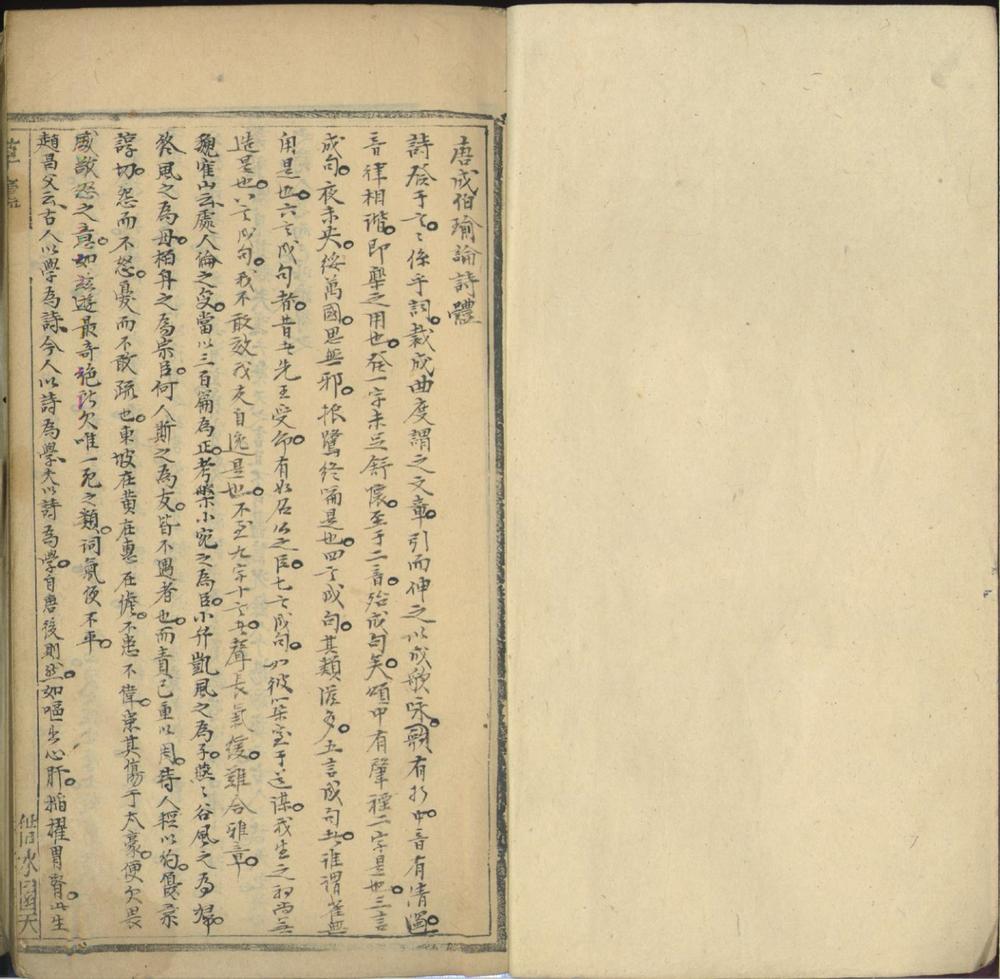 唐成伯瑜論詩體
詩發于言。言係乎詞。裁成曲度謂之文章。引而伸之以成歌咏。歌有折中。音有清濁。
音律相諧。即樂之用也。發一字未足舒懷。至于二音。殆成句矣。頌中有肇禋二字是也。三言
成句。夜未央。綏萬國。思無邪。振鷺終篇是也。四言成句。其類滋多。五言成句者。誰謂雀無
角是也。六言成句者。昔者先王受命有如召公之臣。七言成句。如彼築室于道謀。我生之初尚無
造是也。八言成句。我不敢效我友自逸是也。不至九字十言者。聲長氣緩。難合雅章。
魏寉山云。處人倫之變。當以三百篇為正。考槃小宛之為臣。小弁凱風之為子。燕燕谷風之為婦。
終風之為母。柏舟之為宗臣。何人斯之為友。皆不遇者也。而責己重以周。待人輕以約。優柔
諄切。怨而不怒。憂而不敢疏也。東坡在黃在惠在儋。不患不偉。患其傷于太豪。便欠畏
威敬怒之意。如茲遊最奇絶。所欠唯一死之類。詞氣便不平。
趙昌父云。古人以學為詩。今人以詩為學。夫以詩為學。自唐後則然。如嘔出心肝。搯擢胃腎。此生